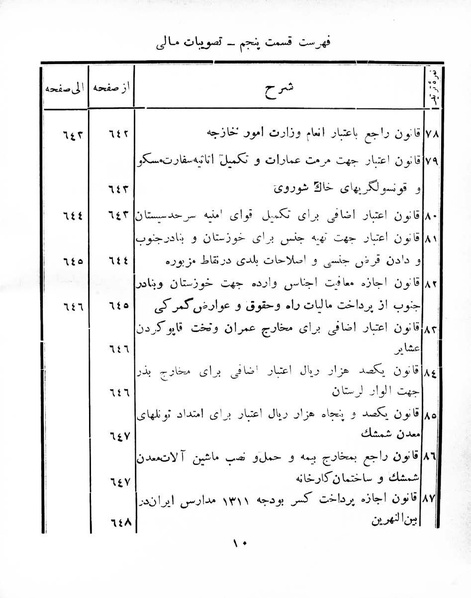 فهرست قسمت پنجم – تصویبات مالی
نمرهٔ ترتیب شرح از صفحه الی صفحه
۷۸ قانون راجع باعتبار انعام وزارت امور خارجه ۶۴۲ ۶۴۳
۷۹ قانون اعتبار جهت مرمت عمارات و تکمیل اثاثیه سفارت مسکو
و قونسولگریهای خاك شوروی ۶۴۳
۸۰ قانون اعتبار اضافی برای تکمیل قوای امنیه سرحد سیستان ۶۴۳ ۶۴۴
۸۱ قانون اعتبار جهت تهیه جنس برای خوزستان و بنادر جنوب
و دادن قرض جنسی و اصلاحات بلدی در نقاط مزبوره ۶۴۴ ۶۴۵
۸۲ قانون اجازه معافیت اجناس وارده جهت خوزستان و بنادر
جنوب از پرداخت مالیات راه و حقوق و عوارض گمرکی ۶۴۵ ۶۴۶
۸۳ قانون اعتبار اضافی برای مخارج عمران و تخت قاپو کردن
عشایر ۶۴۶
۸۴ قانون یکصد هزار ریال اعتبار اضافی برای مخارج بذر
جهت الوار لرستان ۶۴۶
۸۵ قانون یکصد و پنجاه هزار ریال اعتبار برای امتداد تونلهای
معدن شمشك ۶۴۷
۸۶ قانون راجع بمخارج بیمه و حمل و نصب ماشین آلات معدن
شمشك و ساختمان کارخانه ۶۴۷
۸۷ قانون اجازه پرداخت کسر بودجه ۱۳۱۱ مدارس ایران در
بین‌النهرین ۶۴۸
۱۰